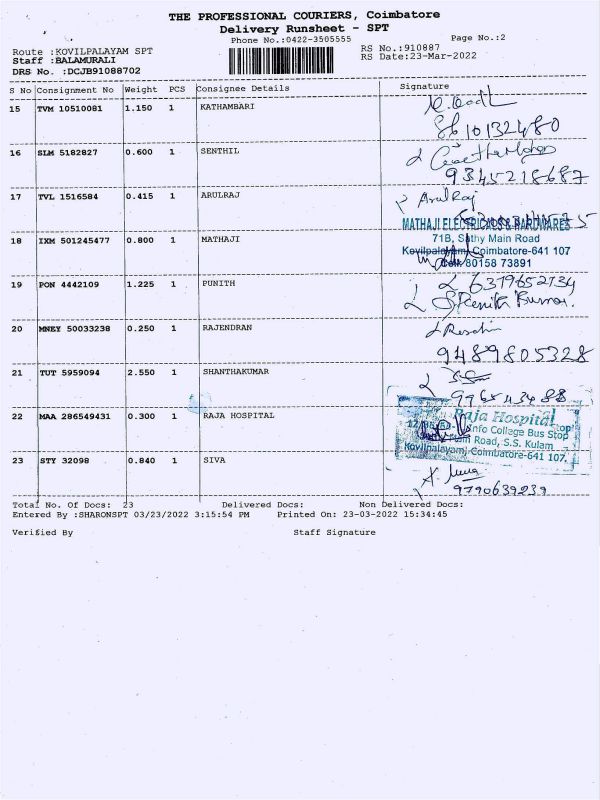 THE PROFESSIONAL COURIERS, Coimbatore
Delivery Runsheet - SPT
Phone No.:0422-3505555
Page No.:2
Route :KOVILPALAYAM SPT
Staff :BALAMURALI
DRS No. :DCJB91088702
RS No.:910887
RS Date:23-Mar-2022
S No Consignment No Weight PCS Consignee Details Signature
15 TVM 10510081 1.150 1 KATHAMBARI
8610132480
16 SLM 5182827 0.600 1 SENTHIL
9345218687
17 TVL 1516584 0.415 1 ARULRAJ
Arulraj
MATHAJI ELECTRICALS & HARDWARES
18 IXM 501245477 0.800 1 MATHAJI
71B, Sathy Main Road
Kovilpalayam, Coimbatore-641 107
Cell: 80158 73891
19 PON 4442109 1.225 1 PUNITH
6379652734
20 MNEY 50033238 0.250 1 RAJENDRAN
9489805328
21 TUT 5959094 2.550 1 SHANTHAKUMAR
22 MAA 286549431 0.300 1 RAJA HOSPITAL
Raja Hospital
Info College Bus Stop
Main Road, S.S. Kulam
Kovilpalayam, Coimbatore-641 107.
23 STY 32098 0.840 1 SIVA
9790639239
Total No. Of Docs: 23 Delivered Docs: Non Delivered Docs:
Entered By :SHARONSPT 03/23/2022 3:15:54 PM Printed On: 23-03-2022 15:34:45
Verified By Staff Signature